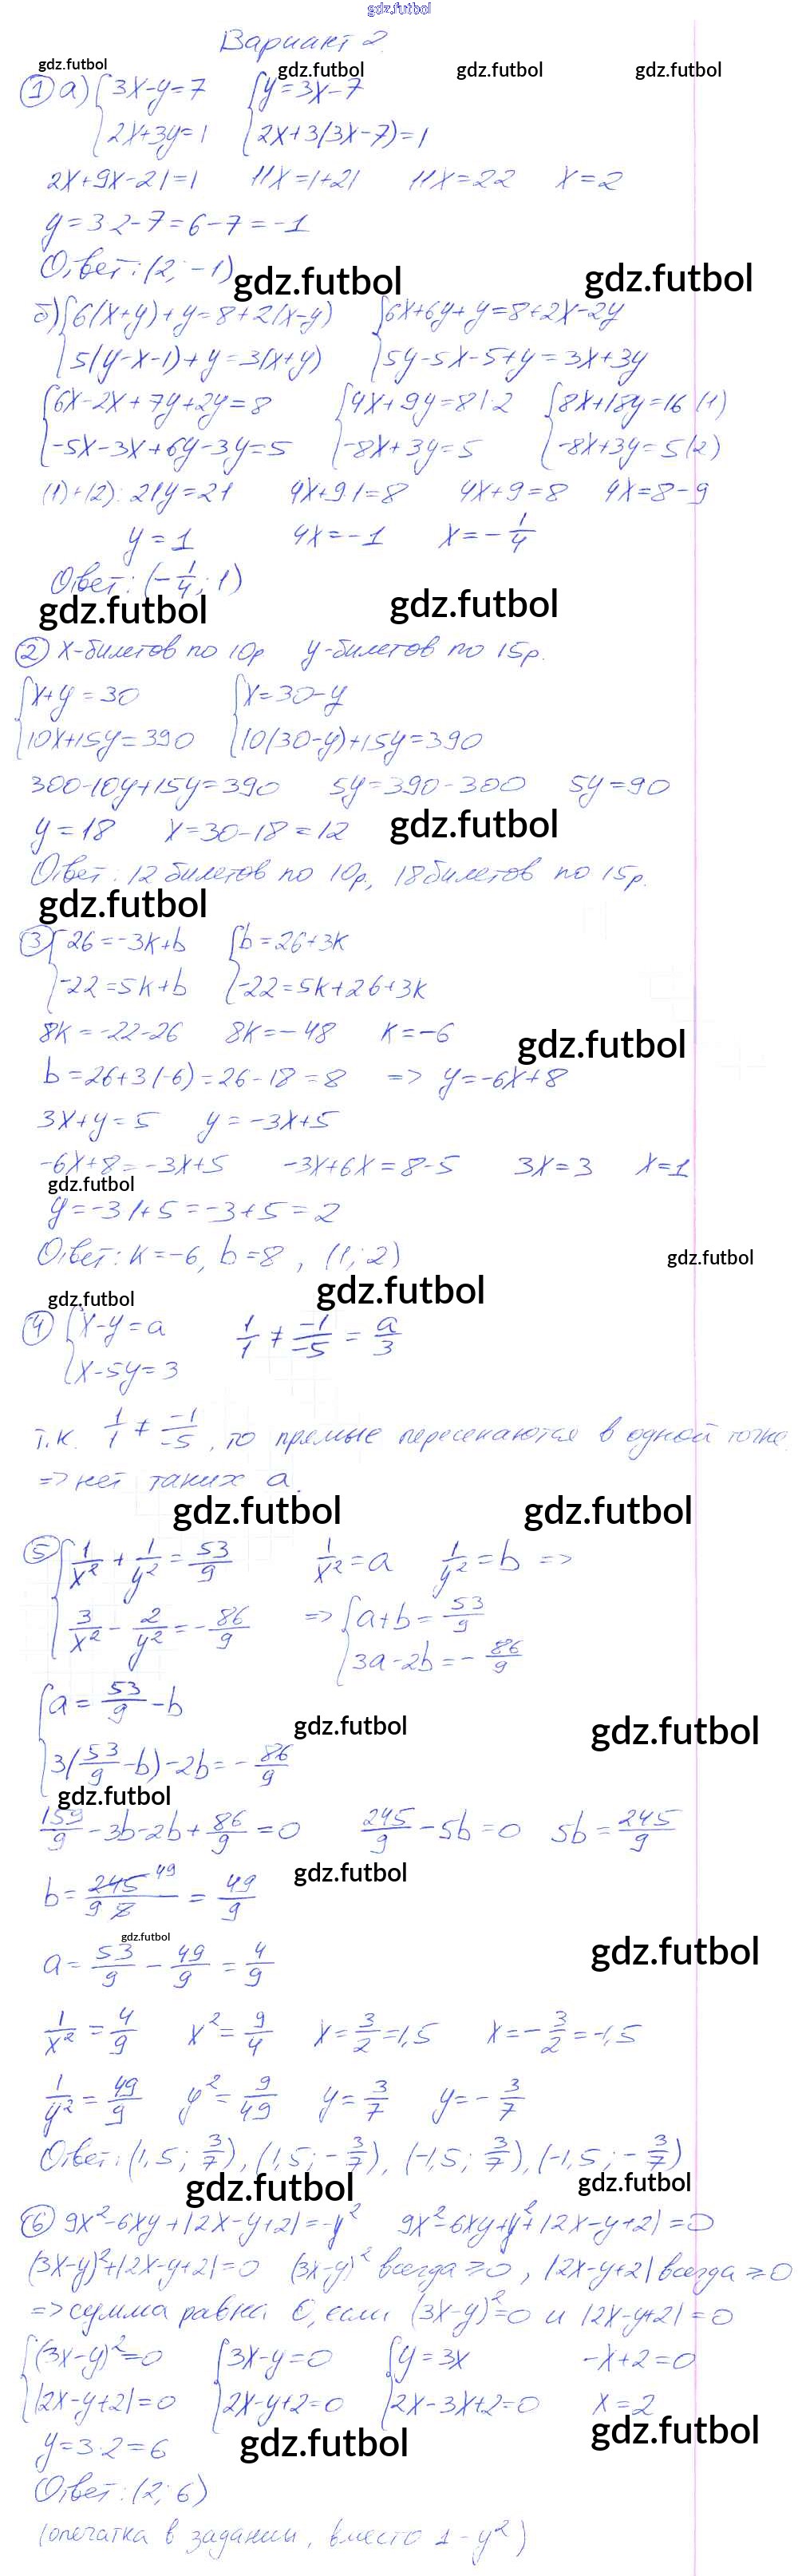 gdz.futbol
Вариант 2.
gdz.futbol gdz.futbol gdz.futbol gdz.futbol
① а) {3x-y=7 {y=3x-7
2x+3y=1 2x+3(3x-7)=1
2x+9x-21=1 11x=1+21 11x=22 x=2
y=3·2-7=6-7=-1
Ответ: (2; -1)
gdz.futbol gdz.futbol
б) {6(x+y)+y=8+2(x-y) {6x+6y+y=8+2x-2y
5(y-x-1)+y=3(x+y) 5y-5x-5+y=3x+3y
{6x-2x+7y+2y=8 {4x+9y=8 |·2 {8x+18y=16 (1)
-5x-3x+6y-3y=5 -8x+3y=5 -8x+3y=5 (2)
(1)+(2): 21y=21 4x+9·1=8 4x+9=8 4x=8-9
y=1 4x=-1 x=-1/4
Ответ: (-1/4; 1)
gdz.futbol gdz.futbol
② x-билетов по 10р y-билетов по 15р.
{x+y=30 {x=30-y
10x+15y=390 10(30-y)+15y=390
300-10y+15y=390 5y=390-300 5y=90
y=18 x=30-18=12 gdz.futbol
Ответ: 12 билетов по 10р, 18 билетов по 15р.
gdz.futbol
③ {26=-3k+b {b=26+3k
-22=5k+b -22=5k+26+3k
8k=-22-26 8k=-48 k=-6
gdz.futbol
b=26+3·(-6)=26-18=8 => y=-6x+8
3x+y=5 y=-3x+5
-6x+8=-3x+5 -3x+6x=8-5 3x=3 x=1
gdz.futbol
y=-3·1+5=-3+5=2
Ответ: k=-6, b=8, (1; 2)
gdz.futbol
gdz.futbol gdz.futbol
④ {x-y=a 1/1 ≠ -1/-5 = a/3
x-5y=3
т.к. 1/1 ≠ -1/-5, то прямые пересекаются в одной точке
=> нет таких a.
gdz.futbol gdz.futbol
⑤ {1/x²+1/y²=53/9 1/x²=a 1/y²=b =>
3/x²-2/y²=-86/9 => {a+b=53/9
3a-2b=-86/9
{a=53/9-b
gdz.futbol gdz.futbol
3(53/9-b)-2b=-86/9
gdz.futbol
159/9-3b-2b+86/9=0 245/9-5b=0 5b=245/9
gdz.futbol
b=245 49/9·5=49/9
gdz.futbol
a=53/9-49/9=4/9 gdz.futbol
1/x²=4/9 x²=9/4 x=3/2=1,5 x=-3/2=-1,5
1/y²=49/9 y²=9/49 y=3/7 y=-3/7
Ответ: (1,5; 3/7), (1,5; -3/7), (-1,5; 3/7), (-1,5; -3/7)
gdz.futbol gdz.futbol
⑥ 9x²-6xy+|2x-y+2|=-y² 9x²-6xy+y²+|2x-y+2|=0
(3x-y)²+|2x-y+2|=0 (3x-y)² всегда ≥0, |2x-y+2| всегда ≥0
=> сумма равна 0, если (3x-y)²=0 и |2x-y+2|=0
{(3x-y)²=0 {3x-y=0 {y=3x -x+2=0
|2x-y+2|=0 2x-y+2=0 2x-3x+2=0 x=2
gdz.futbol gdz.futbol
y=3·2=6
Ответ: (2; 6)
(опечатка в задании, вместо 1 - y²)